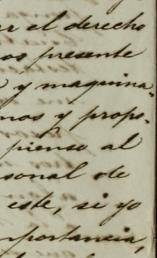 er el derecho
os presente
y maquina-
nos y propo-
piense al
sonal de
este, si yo
mportancia,